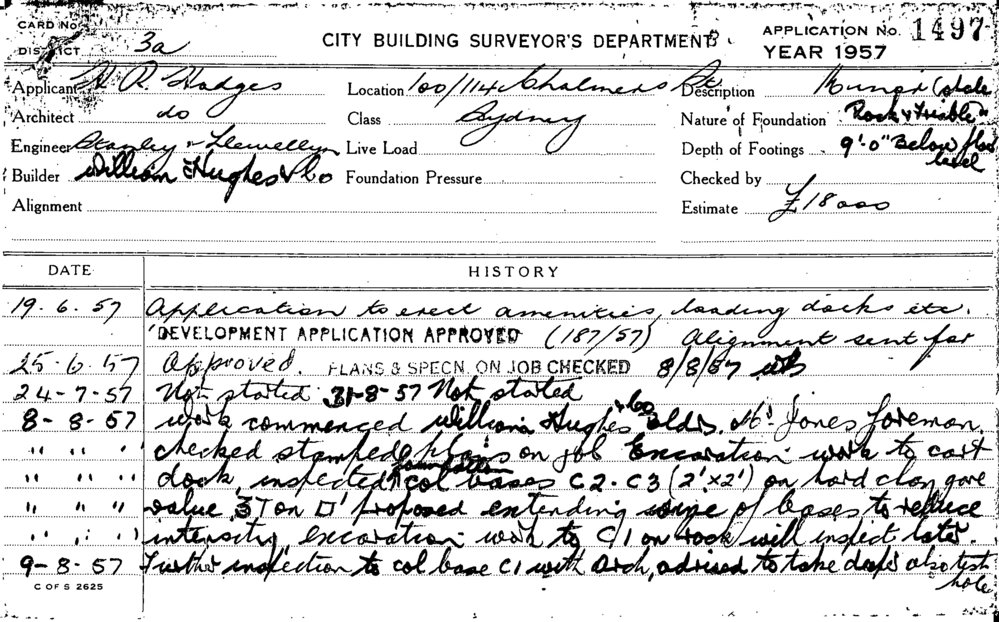 CARD No.
DISTRICT 3a
CITY BUILDING SURVEYOR'S DEPARTMENT
APPLICATION No. 1497
YEAR 1957
Applicant H R Hodges
Location 100/114 Chalmers St
Description
Architect do
Class Sydney
Nature of Foundation Rock & Friable"
Engineer Stanley & Llewellyn
Live Load
Depth of Footings 9'-0" Below floor level
Builder William Hughes & Co
Foundation Pressure
Checked by
Alignment
Estimate £18000
DATE
HISTORY
19.6.57 Application to erect amenities, loading docks etc.
DEVELOPMENT APPLICATION APPROVED (187/57) Alignment sent for
25-6-57 Approved. PLANS & SPECN. ON JOB CHECKED 8/8/57
24-7-57 Not started 31-8-57 Not started
8-8-57 work commenced William Hughes & Co Bldrs. Mr Jones foreman,
" " " checked stamped plans on job Excavation work to cart
" " " dock, inspected foundation col bases C2-C3 (2'x2') on hard clay gave
" " " value 3T on □' proposed extending of bases to reduce
" " " intensity, excavation work to C1 on rock will inspect later.
9-8-57 Further inspection to col base C1 with Arch, advised to take deeper also test hole
C OF S 2625